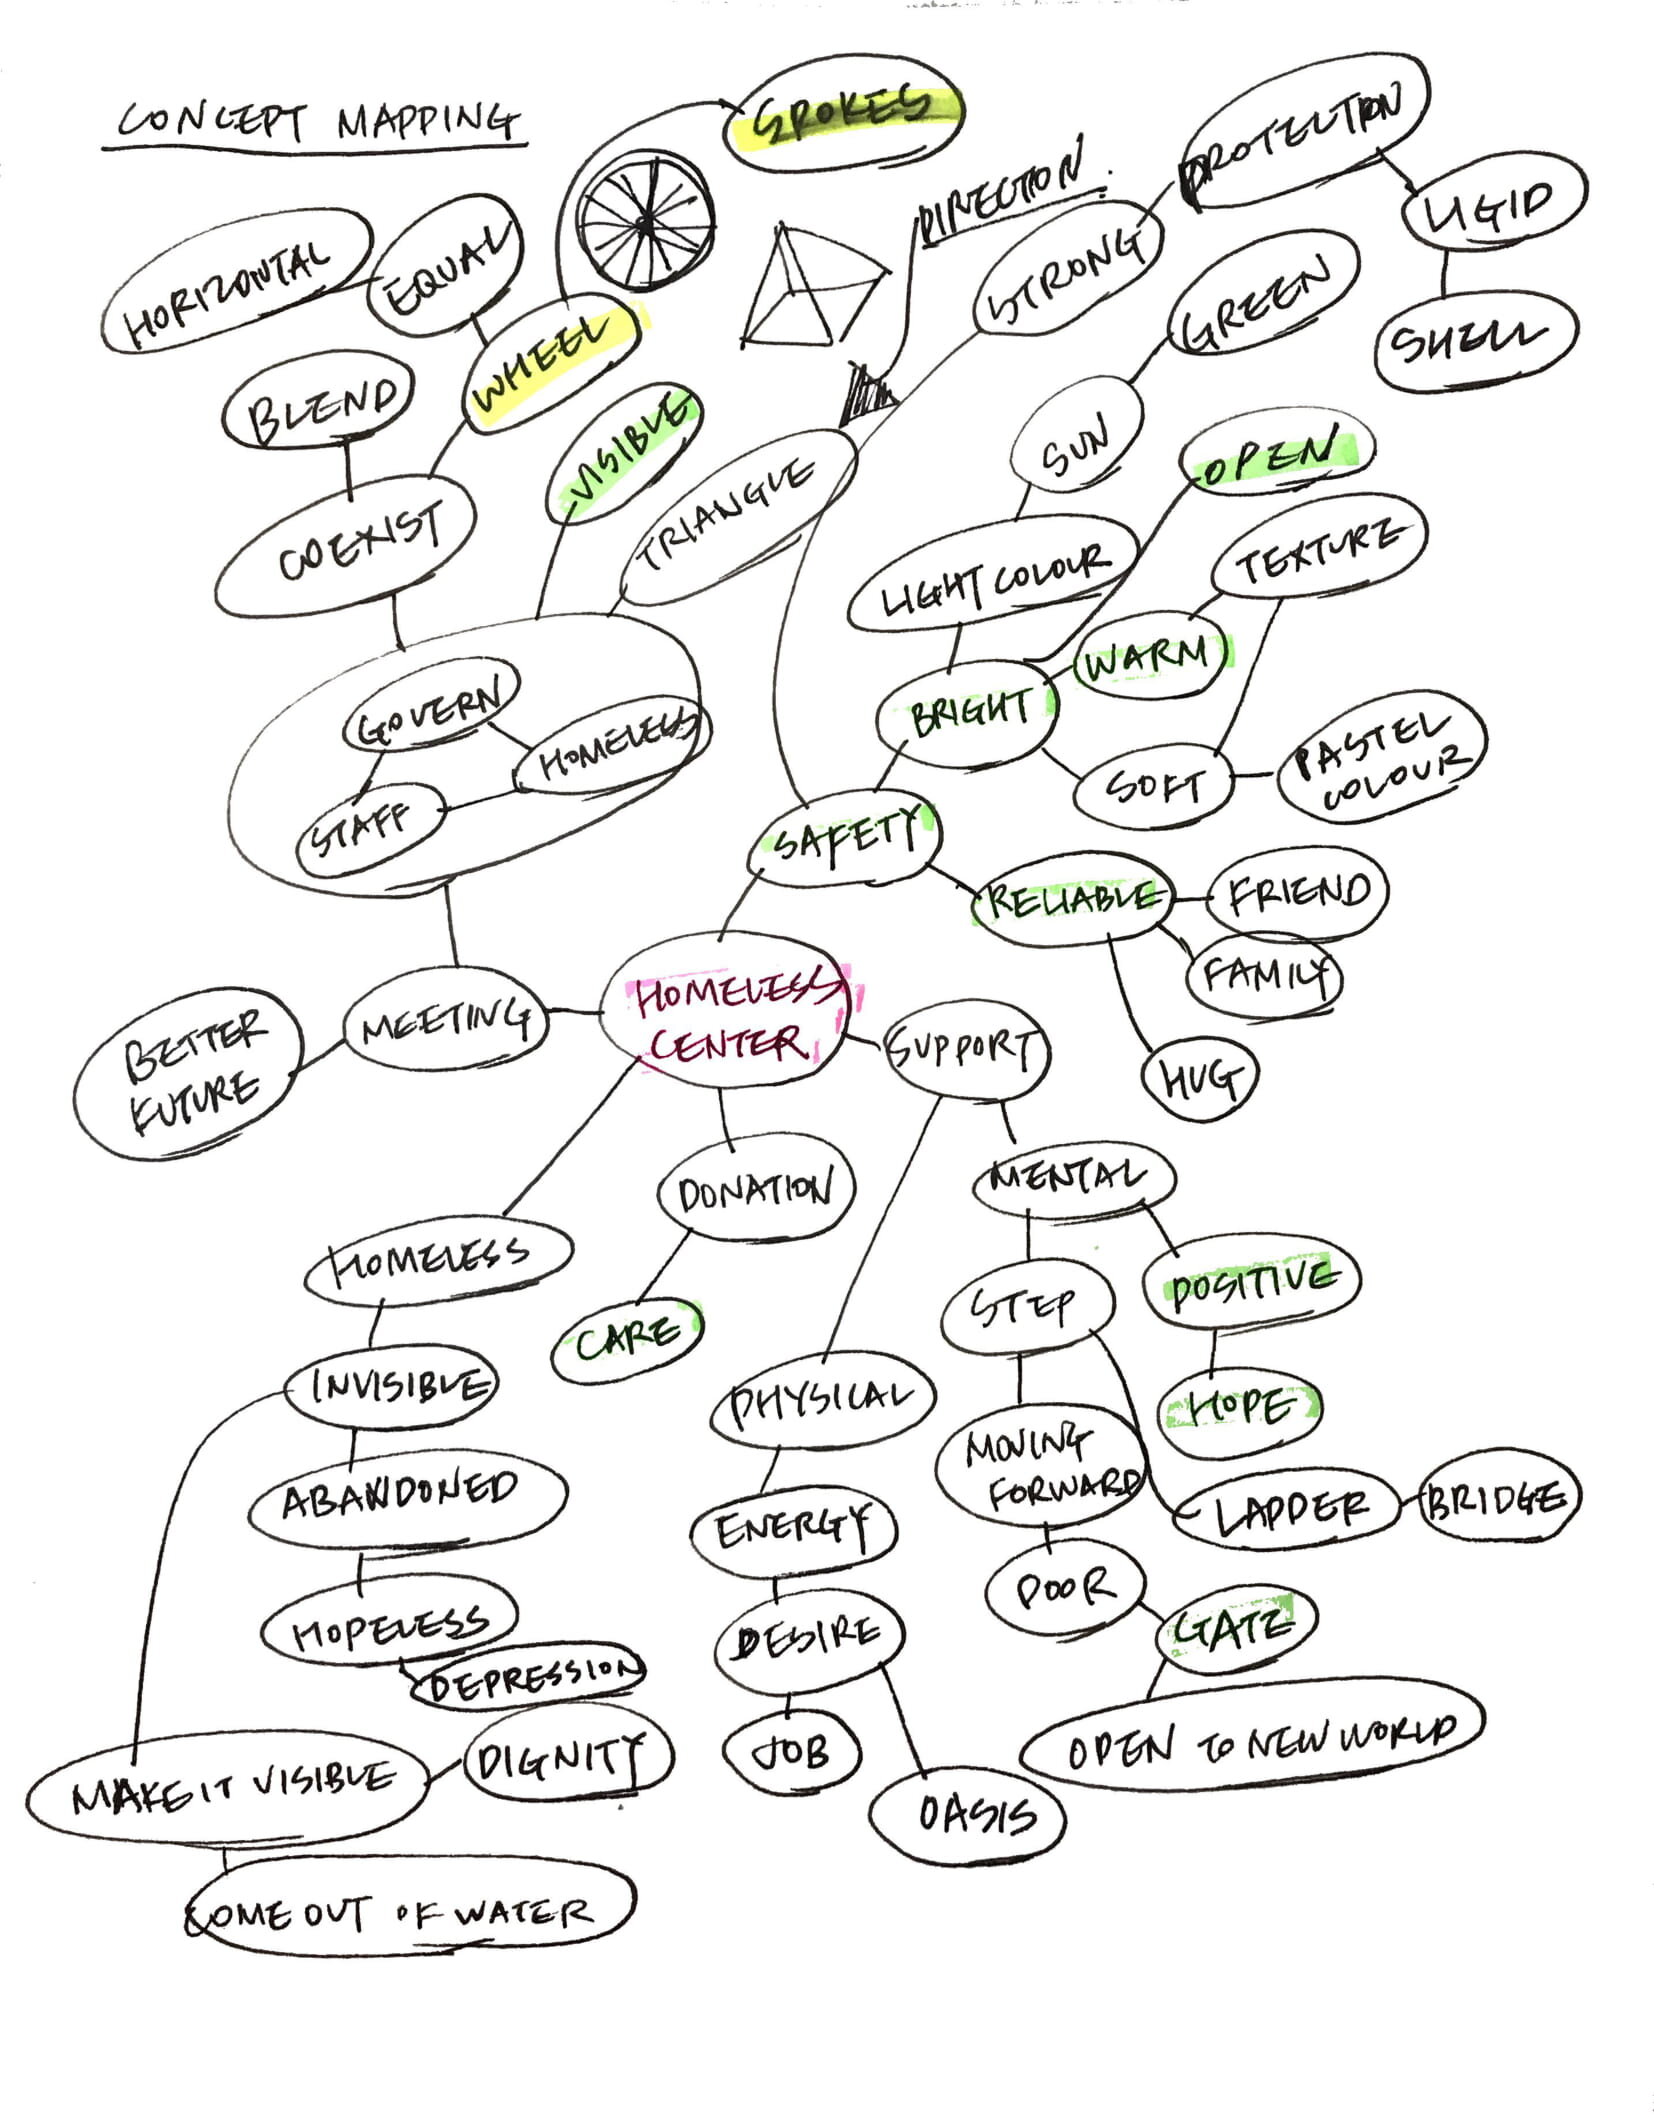 CONCEPT MAPPING
SPOKES
PROTECTION
LIGID
SHELL
DIRECTION.
STRONG
GREEN
HORIZONTAL
EQUAL
WHEEL
BLEND
VISIBLE
SUN
OPEN
COEXIST
TRIANGLE
TEXTURE
LIGHT COLOUR
WARM
BRIGHT
GOVERN
HOMELESS
STAFF
SOFT
PASTEL
COLOUR
SAFETY
RELIABLE
FRIEND
FAMILY
HUG
HOMELESS
CENTER
MEETING
BETTER
FUTURE
SUPPORT
DONATION
MENTAL
HOMELESS
CARE
STEP
POSITIVE
HOPE
INVISIBLE
PHYSICAL
MOVING
FORWARD
ABANDONED
LADDER
BRIDGE
ENERGY
POOR
HOPELESS
DEPRESSION
DESIRE
GATE
JOB
OPEN TO NEW WORLD
MAKE IT VISIBLE
DIGNITY
OASIS
COME OUT OF WATER